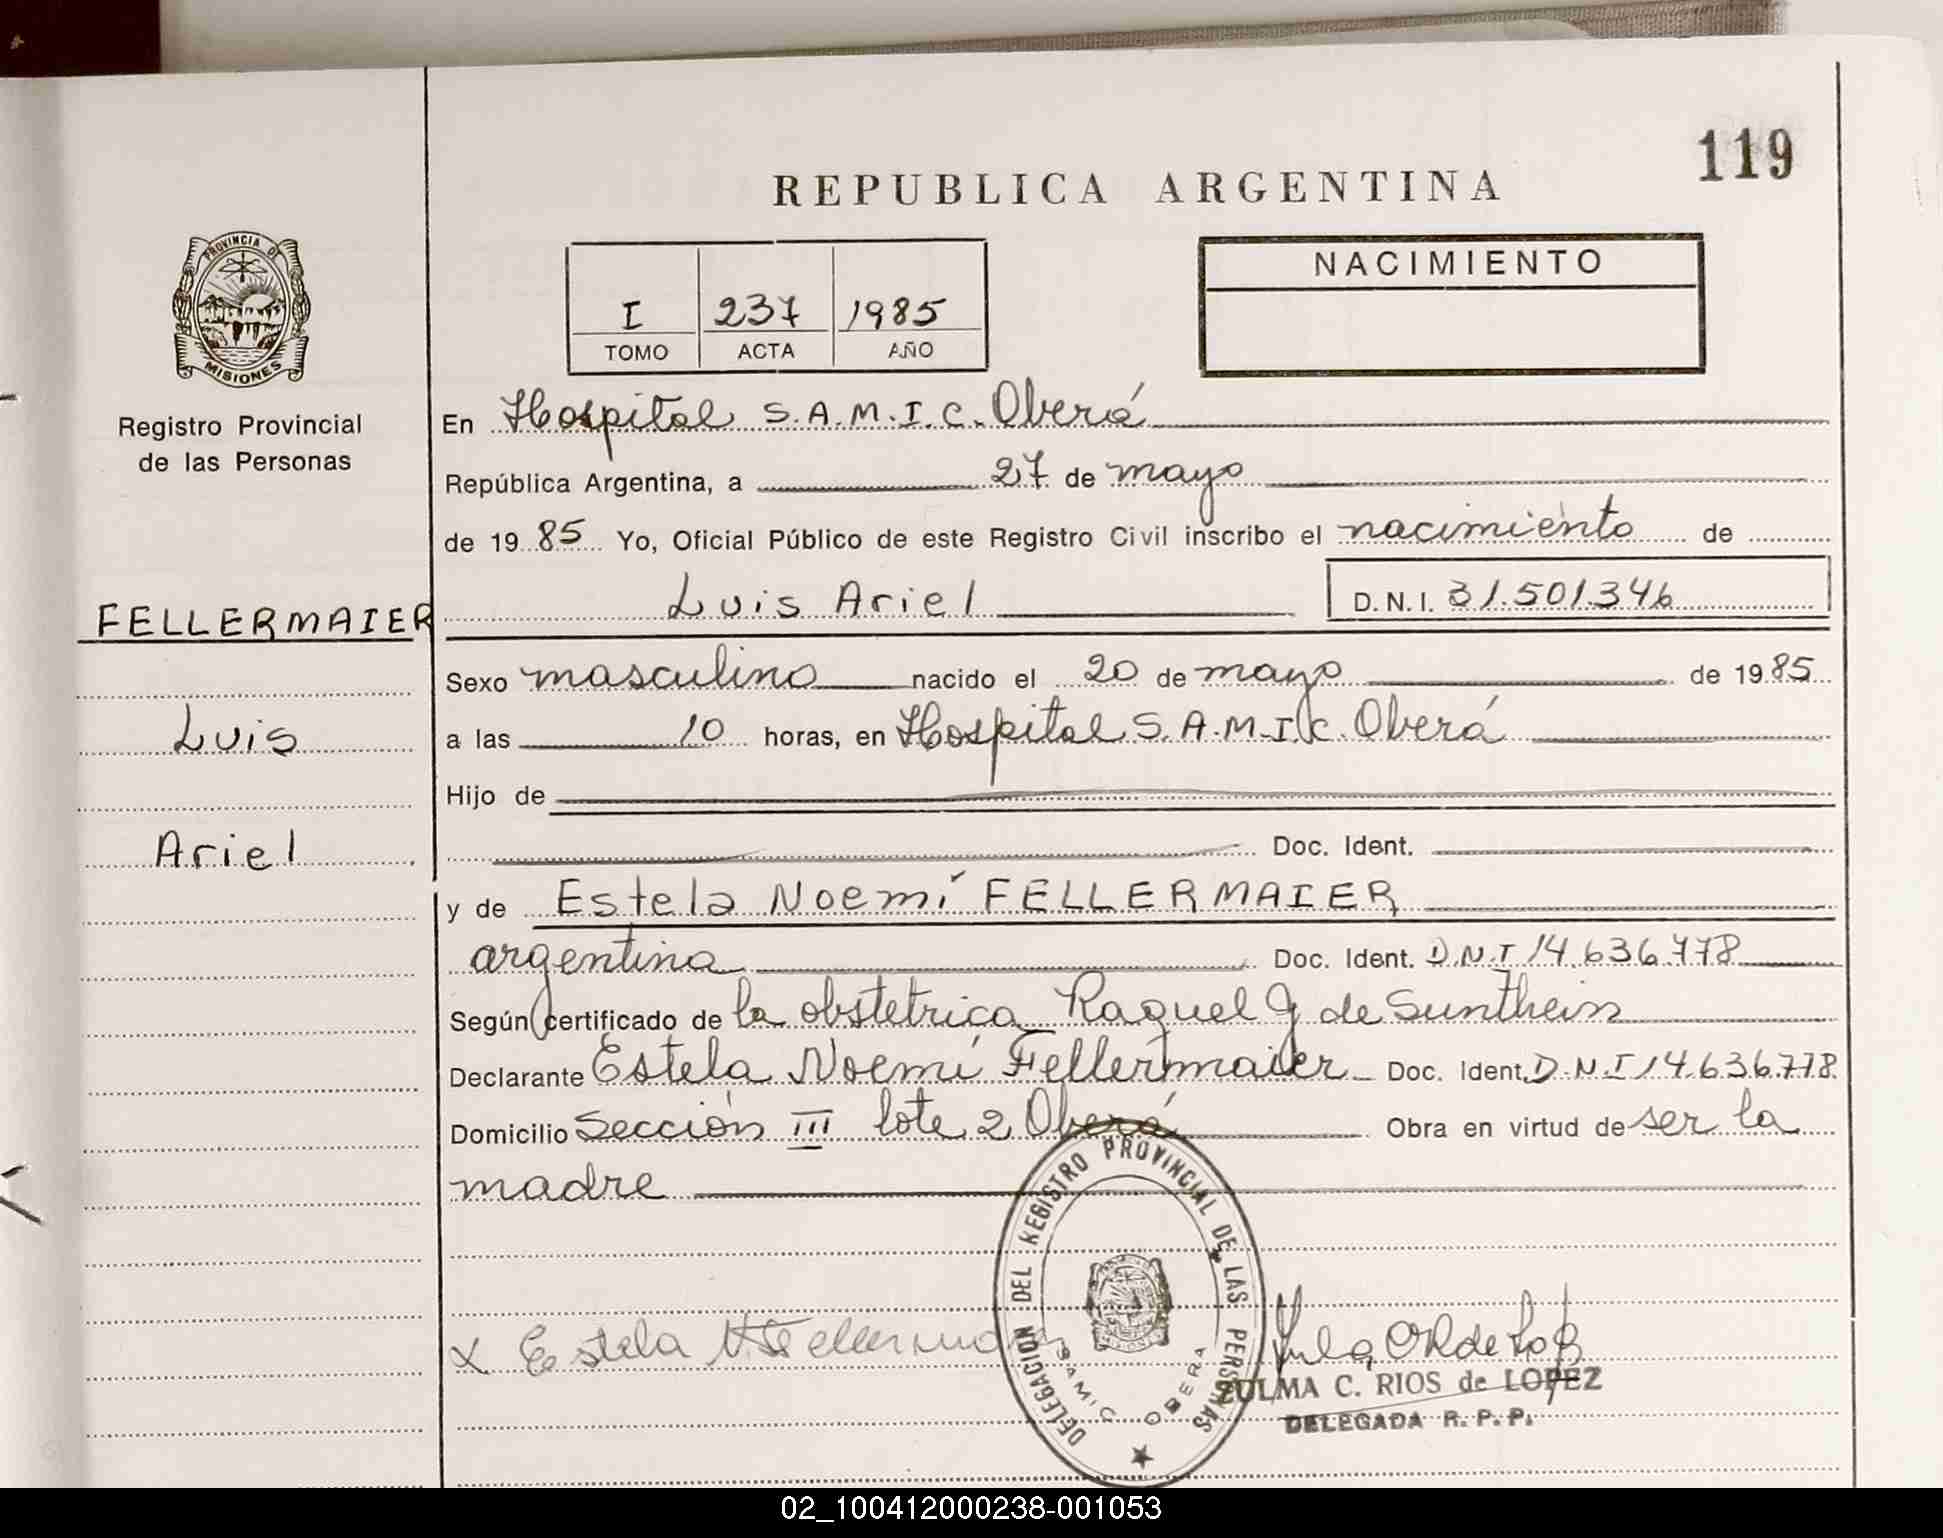 119
REPUBLICA ARGENTINA
PROVINCIA DE
MISIONES
Registro Provincial
de las Personas
I 237 1985
TOMO ACTA AÑO
NACIMIENTO
En Hospital S.A.M.I.C. Oberá
República Argentina, a 27 de mayo
de 1985 Yo, Oficial Público de este Registro Civil inscribo el nacimiento de
FELLERMAIER
Luis Ariel D.N.I. 31.501.346
Sexo masculino nacido el 20 de mayo de 1985
Luis
a las 10 horas, en Hospital S.A.M.I.C. Oberá
Hijo de
Ariel
Doc. Ident.
y de Estela Noemí FELLERMAIER
argentina Doc. Ident. D.N.I 14.636.778
Según certificado de la obstetrica Raquel G de Sunthein
Declarante Estela Noemí Fellermaier Doc. Ident. D.N.I 14.636.778
Domicilio Sección III lote 2 Oberá Obra en virtud de ser la
madre
DELEGACION DEL REGISTRO PROVINCIAL DE LAS PERSONAS
SAMIC OBERA
x Estela N.
ZULMA C. RIOS de LOPEZ
DELEGADA R. P. P.
02_100412000238-001053